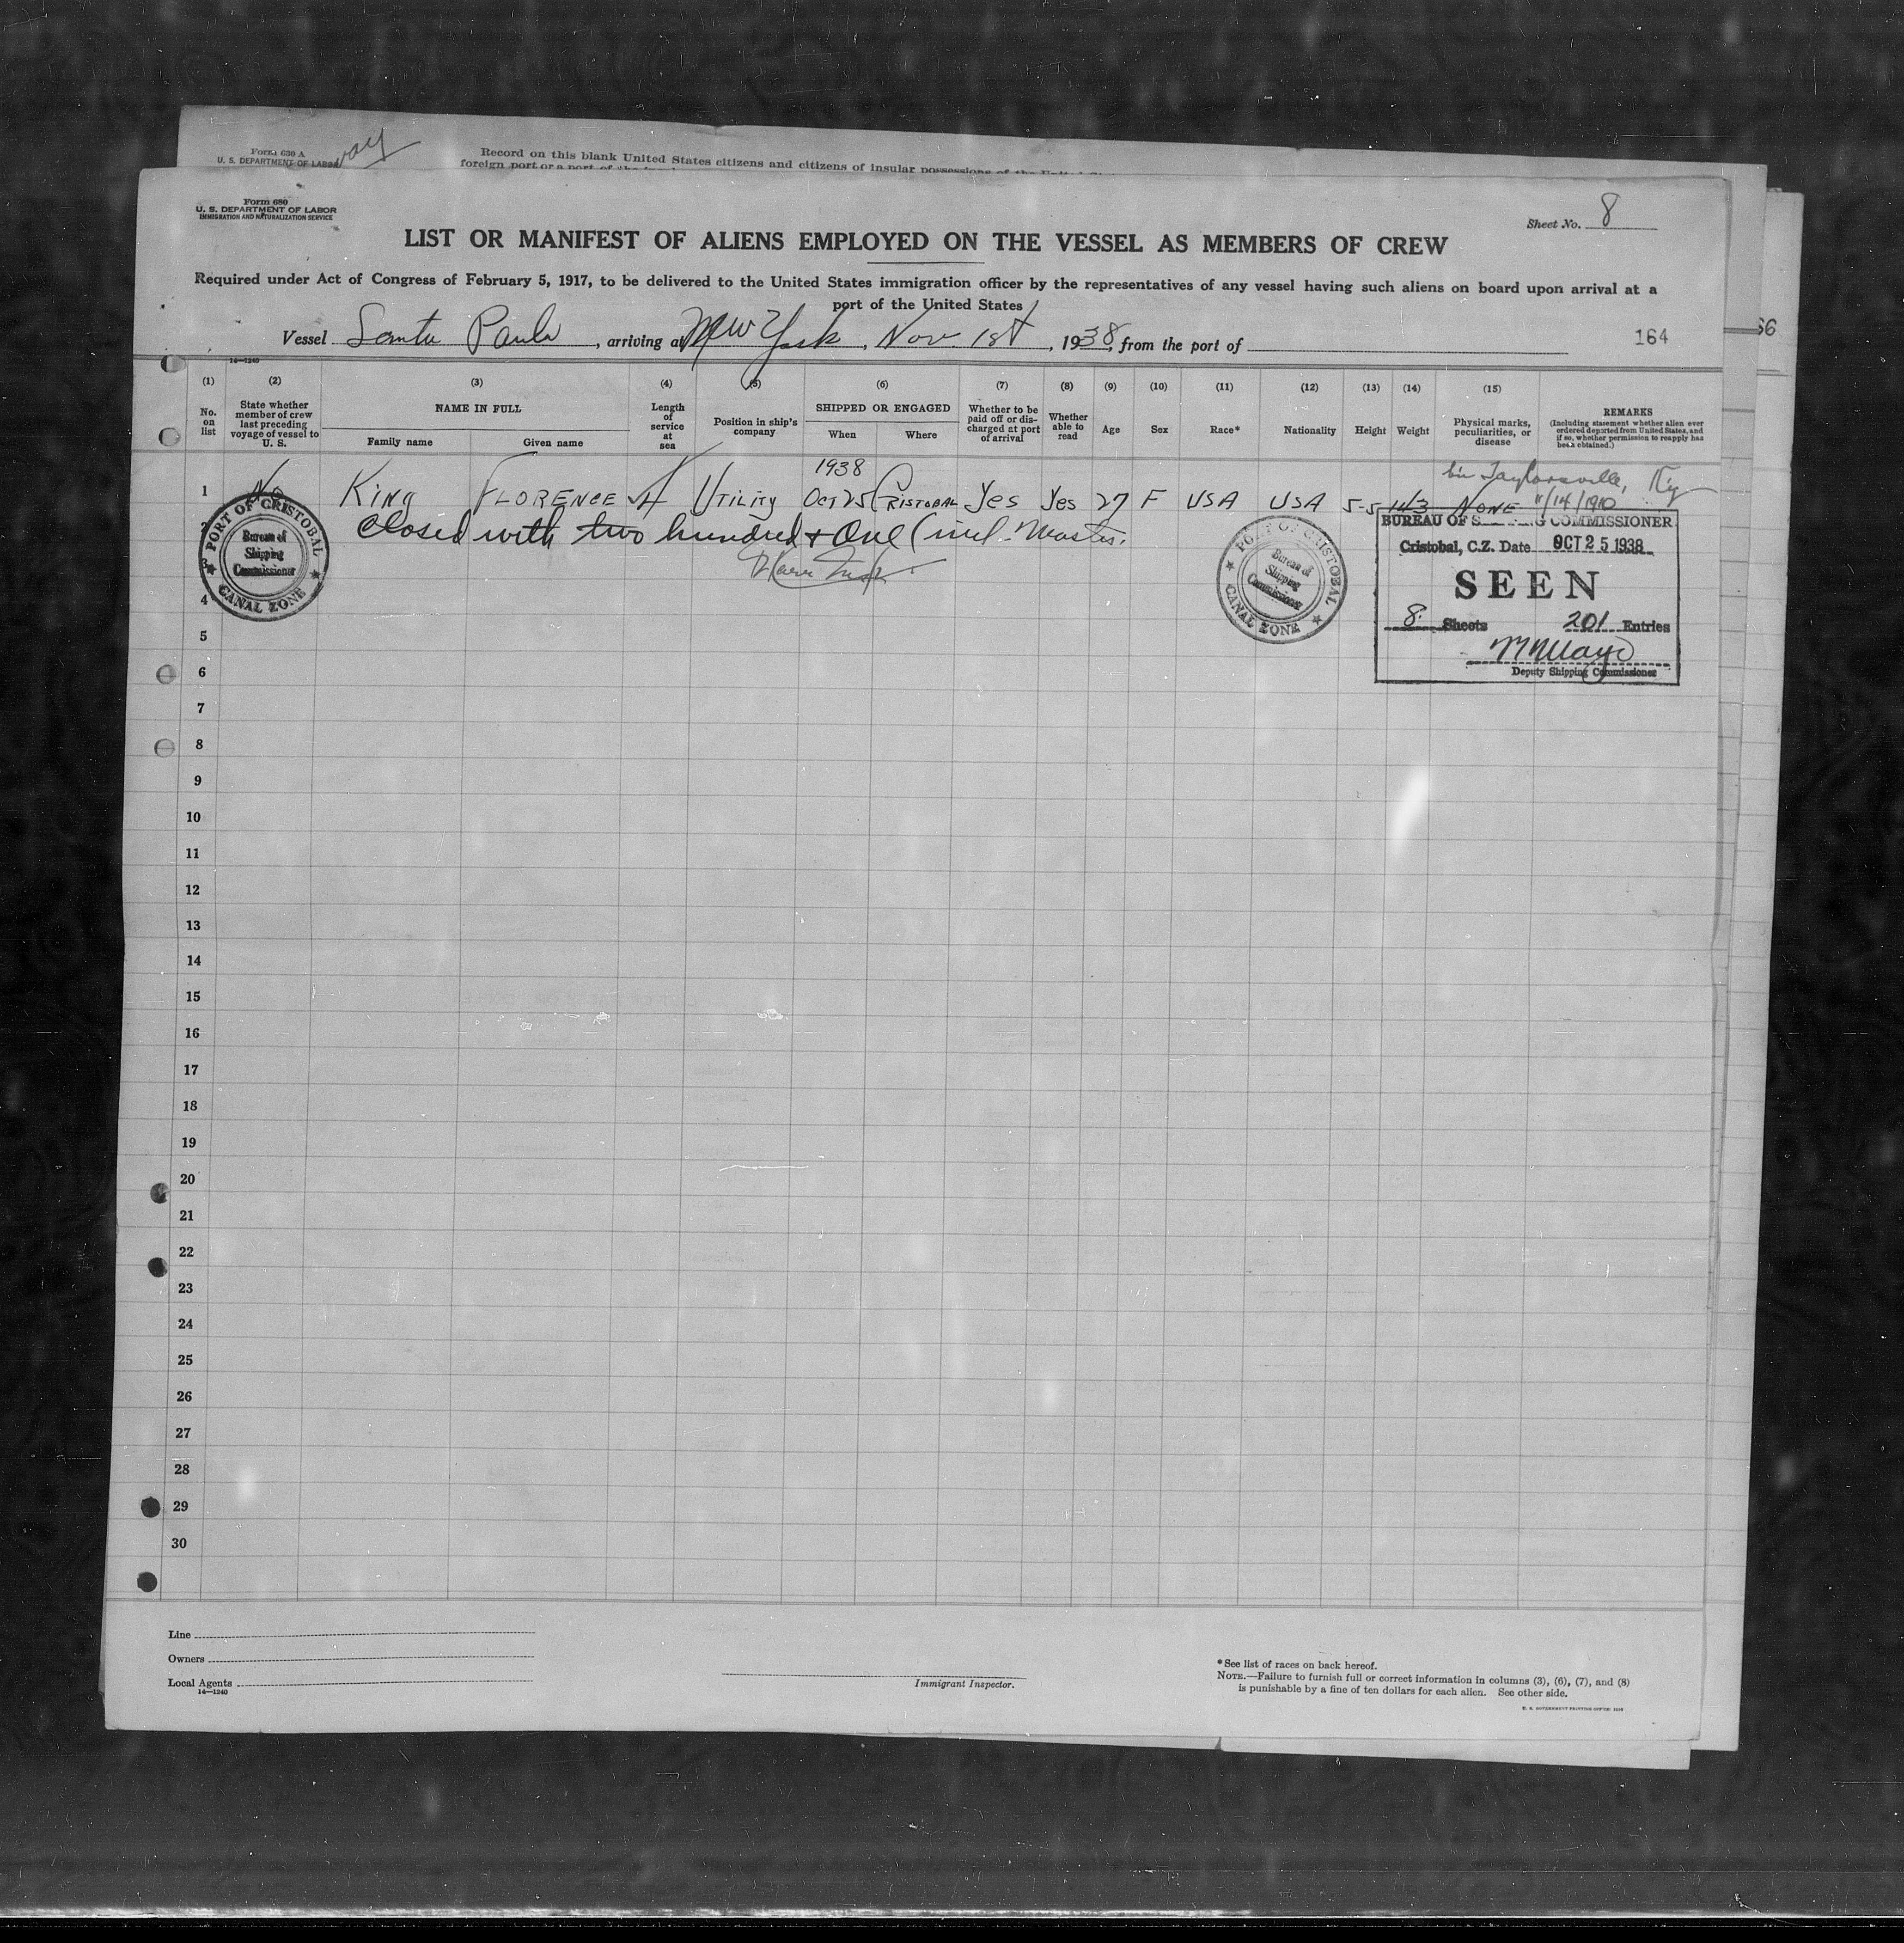 Form 630 A
U. S. DEPARTMENT OF LABOR
Record on this blank United States citizens and citizens of insular possessions of the
foreign port or a port of the
66
Form 680
U. S. DEPARTMENT OF LABOR
IMMIGRATION AND NATURALIZATION SERVICE
Sheet No. 8
LIST OR MANIFEST OF ALIENS EMPLOYED ON THE VESSEL AS MEMBERS OF CREW
Required under Act of Congress of February 5, 1917, to be delivered to the United States immigration officer by the representatives of any vessel having such aliens on board upon arrival at a
port of the United States
Vessel Santa Paula, arriving at New York, Nov. 1st, 1938, from the port of
164
14—1240
(1) (2) (3) (4) (5) (6) (7) (8) (9) (10) (11) (12) (13) (14) (15)
No. on list
State whether member of crew last preceding voyage of vessel to U. S.
NAME IN FULL
Family name Given name
Length of service at sea
Position in ship's company
SHIPPED OR ENGAGED
When Where
Whether to be paid off or discharged at port of arrival
Whether able to read
Age
Sex
Race*
Nationality
Height
Weight
Physical marks, peculiarities, or disease
REMARKS
(Including statement whether alien ever ordered deported from United States, and if so, whether permission to reapply has been obtained.)
1938
Taylorsville, Ky
1 No King FLORENCE UTILITY OCT 25 CRISTOBAL Yes Yes 27 F USA USA 5-5 113 NONE 11/14/1910
Closed with two hundred + One (incl. Master.
PORT OF CRISTOBAL
Bureau of
Shipping
Commissioner
CANAL ZONE
PORT OF CRISTOBAL
Bureau of
Shipping
Commissioner
CANAL ZONE
BUREAU OF S NG COMMISSIONER
Cristobal, C.Z. Date OCT 25 1938
SEEN
8 Sheets 201 Entries
Deputy Shipping Commissioner
2
3
4
5
6
7
8
9
10
11
12
13
14
15
16
17
18
19
20
21
22
23
24
25
26
27
28
29
30
Line
Owners
Local Agents
14—1240
Immigrant Inspector.
*See list of races on back hereof.
NOTE.—Failure to furnish full or correct information in columns (3), (6), (7), and (8)
is punishable by a fine of ten dollars for each alien. See other side.